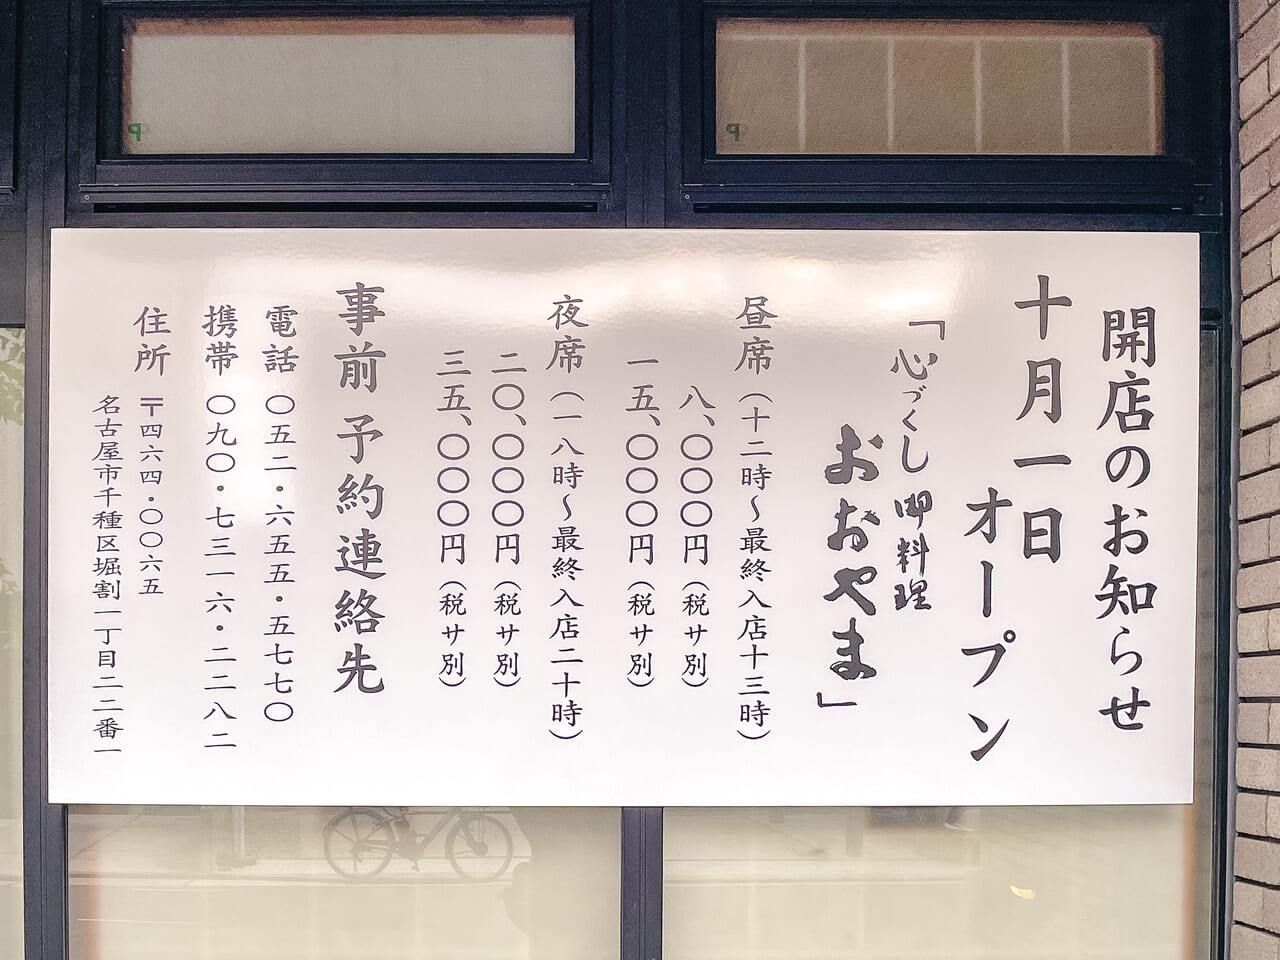 開店のお知らせ
十月一日
オープン
「心づくし御料理
おおやま」
昼席（十二時〜最終入店十三時）
八、〇〇〇円（税サ別）
一五、〇〇〇円（税サ別）
夜席（一八時〜最終入店二十時）
二〇、〇〇〇円（税サ別）
三五、〇〇〇円（税サ別）
事前予約連絡先
電話 〇五二・六五五・五七七〇
携帯 〇九〇・七三一六・二二八二
住所 〒四六四・〇〇六五
名古屋市千種区堀割一丁目二二番一